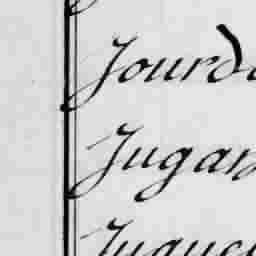 Jourd
Jugan
Jugue